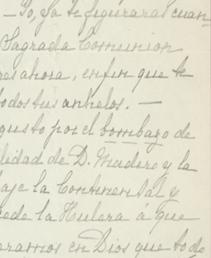 - Yo, ya te figurarás cuan-
Sagrada Comunion
res ahora, en fin que te
todos tus anhelos. -
gusto por el bombazo de
lidad de D. Madero y la
baje la Continental y
cede la Hulera á que
eramos en Dios que todo